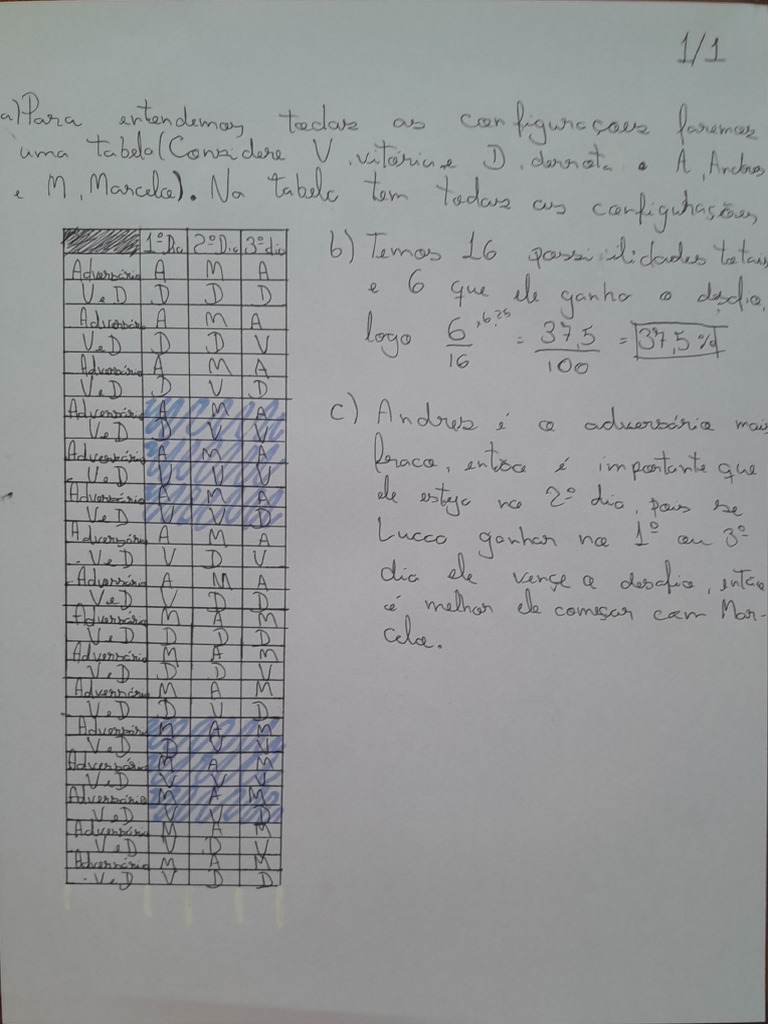 1/1
a) Para entendemos todas as configurações faremos
uma tabela (Considere V, vitória e D, derrota e A, Andres
e M, Marcelo). Na tabela tem todas as configurações
1º Dia 2º Dia 3º dia
Adversário A M A
V e D D D D
Adversário A M A
V e D D D V
Adversário A M A
V e D D V D
Adversário A M A
V e D D V V
Adversário A M A
V e D V V V
Adversário A M A
V e D V V D
Adversário A M A
V e D V D V
Adversário A M A
V e D V D D
Adversário M A M
V e D D D D
Adversário M A M
V e D D D V
Adversário M A M
V e D D V D
Adversário M A M
V e D D V V
Adversário M A M
V e D V V V
Adversário M A M
V e D V V D
Adversário M A M
V e D V D V
Adversário M A M
V e D V D D
b) Temos 16 possibilidades totais
e 6 que ele ganha o desafio,
logo 6/16 ,6,25 = 37,5/100 = 37,5%
c) Andres é o adversário mais
fraco, então é importante que
ele esteja no 2º dia, pois se
Lucco ganhar no 1º ou 3º
dia ele vençe o desafio, então
é melhor ele começar com Mar-
celo.